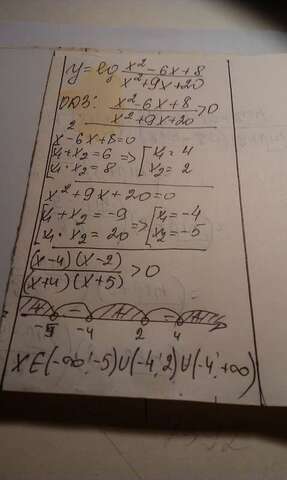 y=log x²-6x+8 / x²+9x+20
ОДЗ: x²-6x+8 / x²+9x+20 >0
x²-6x+8=0
x₁+x₂=6 => [x₁=4
x₁·x₂=8 [x₂=2
x²+9x+20=0
[x₁+x₂=-9 => [x₁=-4
[x₁·x₂=20 [x₂=-5
(x-4)(x-2) / (x+4)(x+5) >0
+ - + - +
-5 -4 2 4
X∈(-∞;-5)∪(-4;2)∪(-4;+∞)